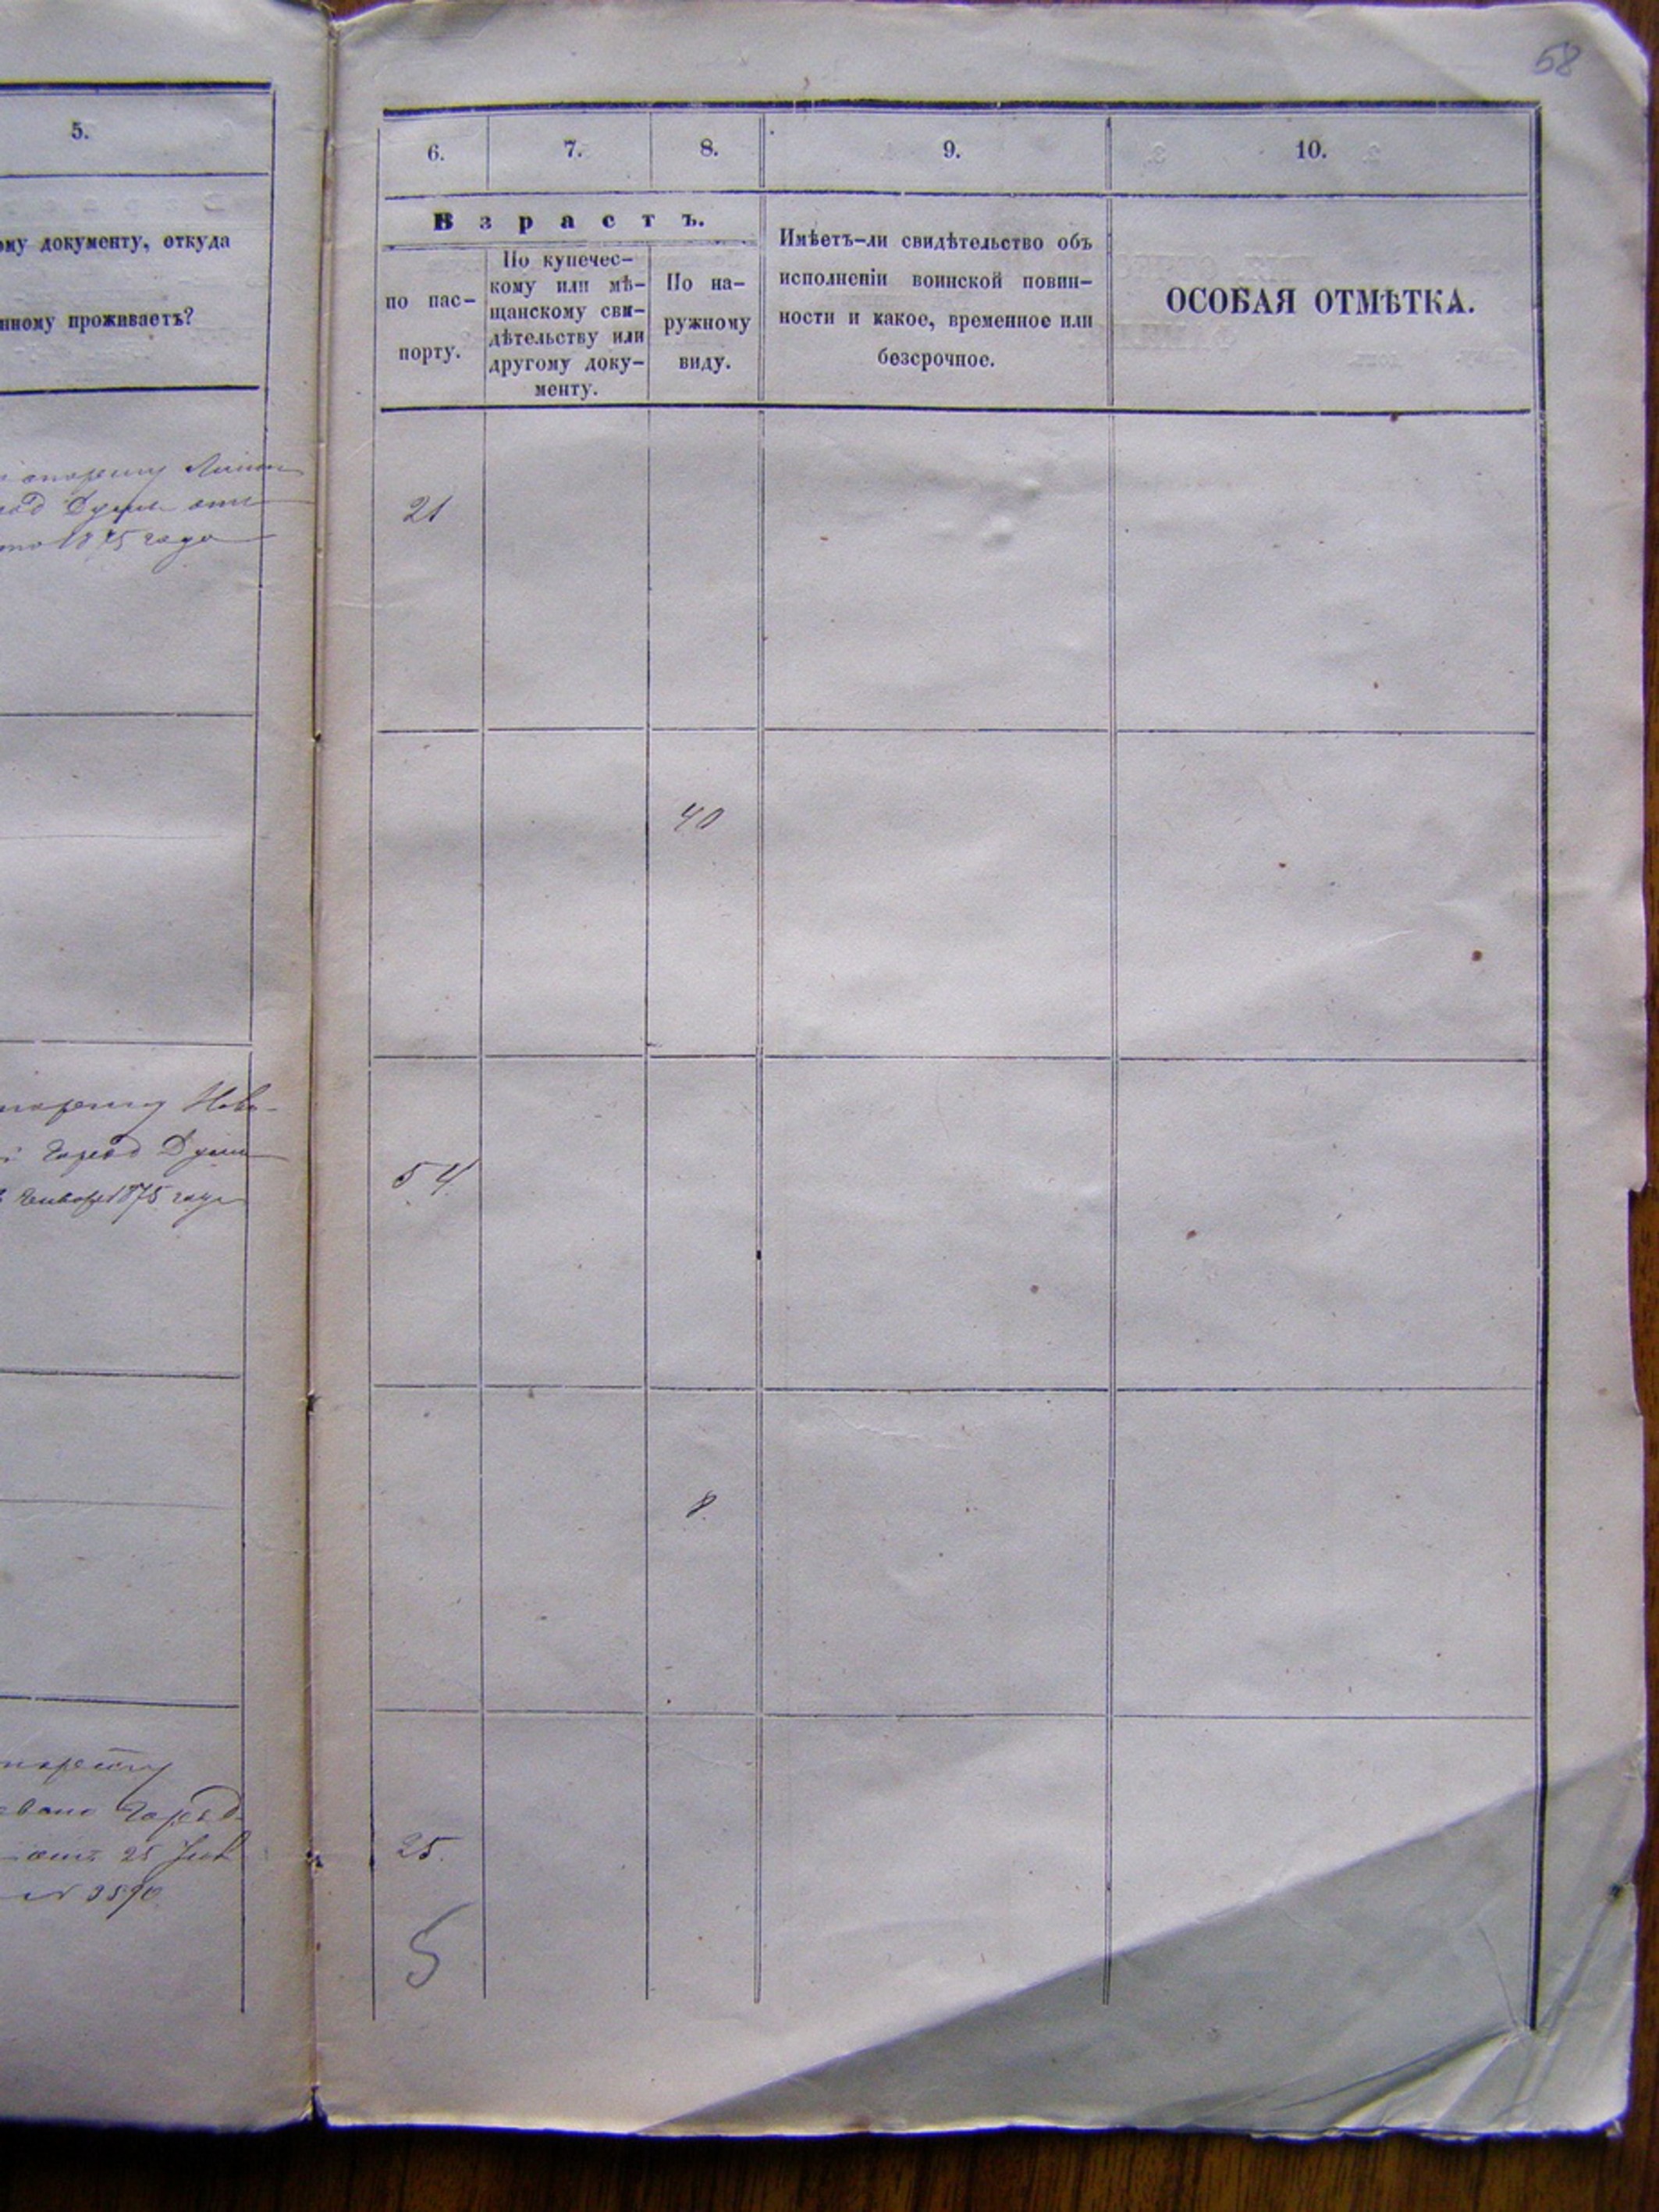 58
5.
ому документу, откуда
нному проживаетъ?
Думы
1875 года
Ново-
Город Думы
Января 1875 года
Город
25
6. 7. 8. 9. 10.
Взрастъ.
по пас-
порту.
По купечес-
кому или мѣ-
щанскому сви-
дѣтельству или
другому доку-
менту.
По на-
ружному
виду.
Имѣетъ-ли свидѣтельство объ
исполненіи воинской повин-
ности и какое, временное или
безсрочное.
ОСОБАЯ ОТМѢТКА.
21
40
54
8
25.
5